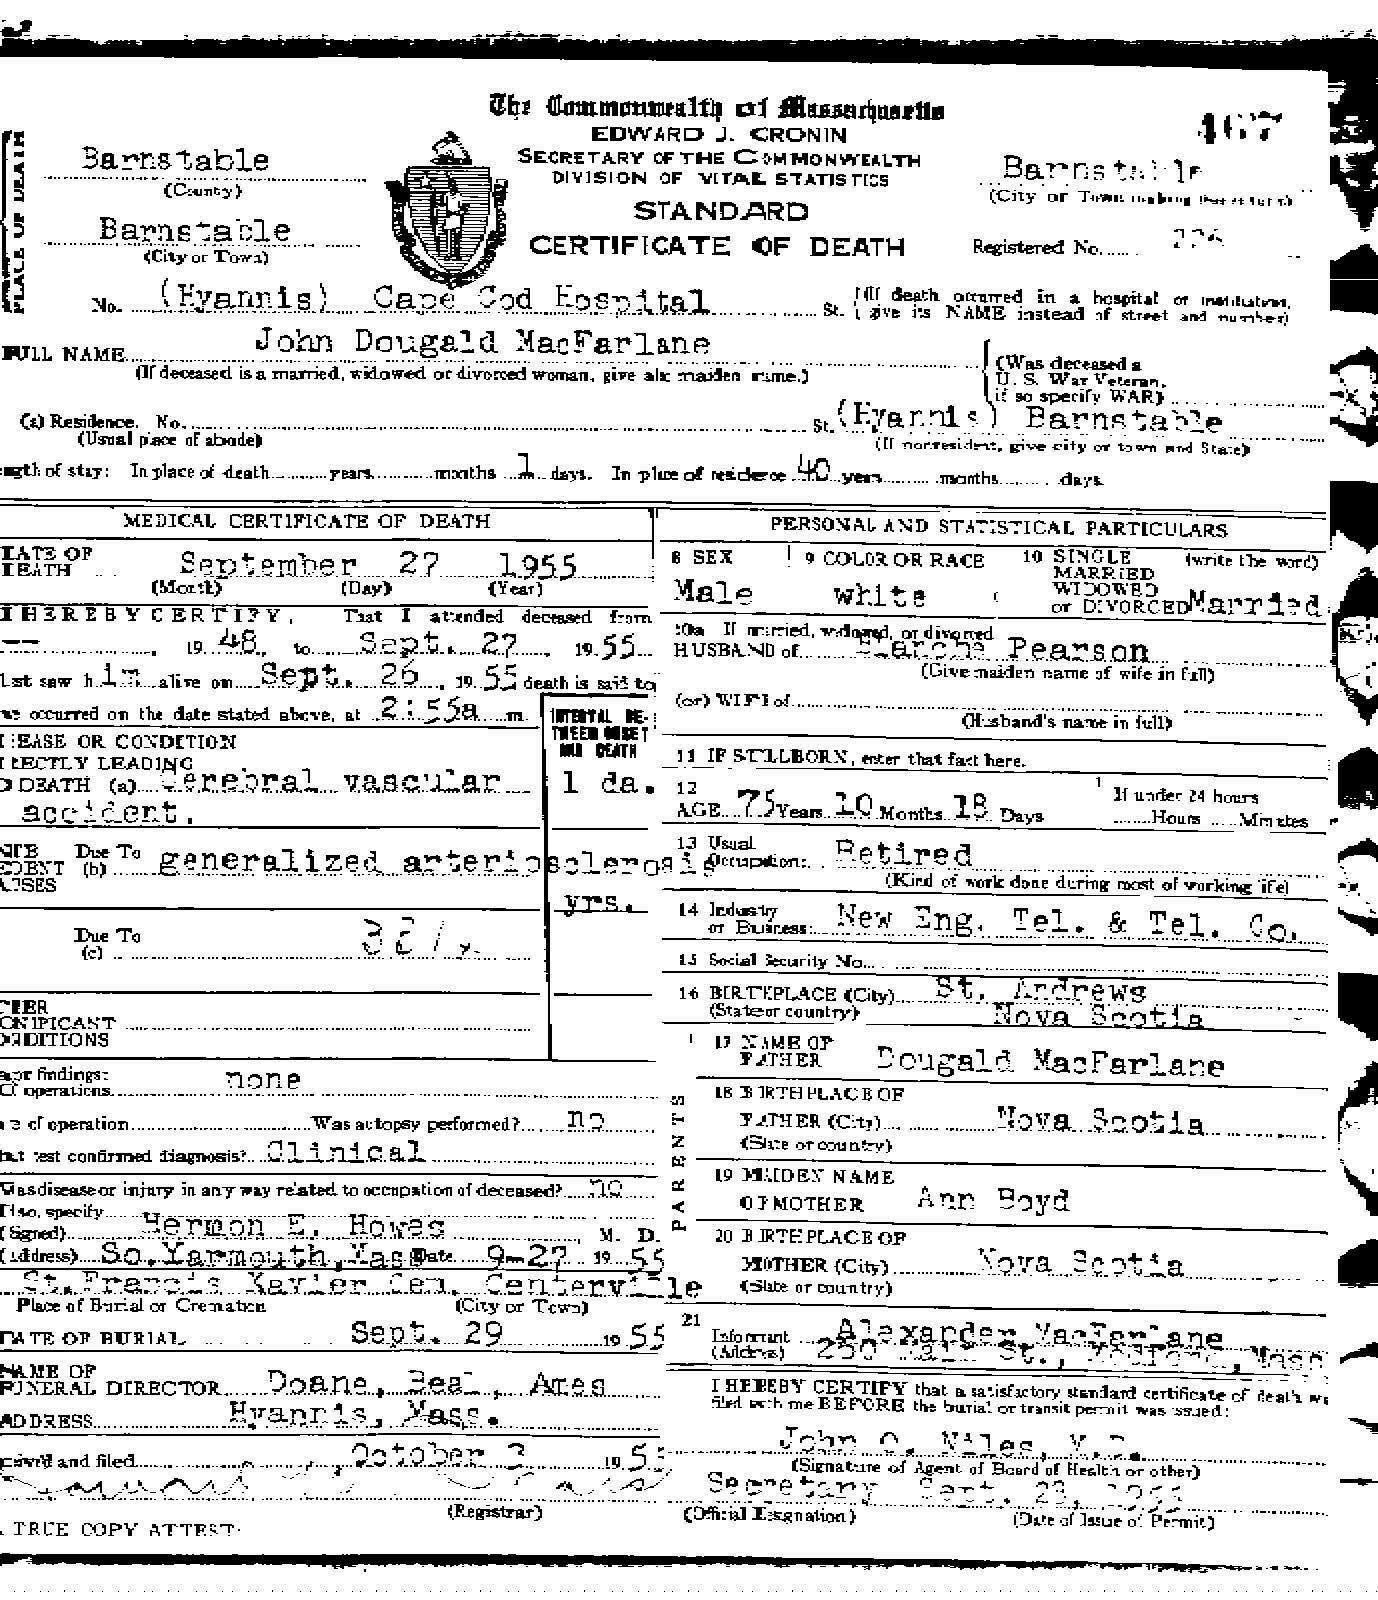 The Commonwealth of Massachusetts
EDWARD J. CRONIN
SECRETARY OF THE COMMONWEALTH
DIVISION OF VITAL STATISTICS
STANDARD
CERTIFICATE OF DEATH
467
PLACE OF DEATH
Barnstable
(County)
Barnstable
(City or Town)
Barnstable
(City or Town making this return)
Registered No.
No. (Hyannis) Cape Cod Hospital St. (If death occurred in a hospital or institution,
give its NAME instead of street and number)
FULL NAME John Dougald MacFarlane
(If deceased is a married, widowed or divorced woman, give also maiden name.)
(Was deceased a
U. S. War Veteran,
if so specify WAR)
(a) Residence. No. St. (Hyannis) Barnstable
(Usual place of abode) (If nonresident, give city or town and State)
ength of stay: In place of death years months 1 days. In place of residence 40 years months days.
MEDICAL CERTIFICATE OF DEATH
DATE OF
DEATH September 27 1955
(Month) (Day) (Year)
I HEREBY CERTIFY, That I attended deceased from
--, 19 48, to Sept. 27, 19 55
ast saw him alive on Sept. 26, 19 55 death is said to
ve occurred on the date stated above, at 2:55a m.
INTERVAL BE-
TWEEN ONSET
AND DEATH
EASE OR CONDITION
RECTLY LEADING
O DEATH (a) Cerebral vascular 1 da.
accident.
Due To
(b) generalized arteriosclerosis
yrs.
AUSES
Due To
(c)
HER
GNIFICANT
ONDITIONS
ajor findings:
Of operations none
e of operation Was autopsy performed? no
hat test confirmed diagnosis? Clinical
Was disease or injury in any way related to occupation of deceased? no
If so, specify
(Signed) Hermon E. Howes, M. D.
(Address) So.Yarmouth,Mass Date 9-27 19 55
St.Francis Xavier Cem. Centerville
Place of Burial or Cremation (City or Town)
DATE OF BURIAL Sept. 29 19 55
NAME OF
FUNERAL DIRECTOR Doane, Beal, Ames
ADDRESS Hyannis, Mass.
ceived and filed October 3 19 55
(Registrar)
A TRUE COPY ATTEST:
PERSONAL AND STATISTICAL PARTICULARS
8 SEX 9 COLOR OR RACE 10 SINGLE (write the word)
MARRIED
WIDOWED
or DIVORCED
Male white Married
10a If married, widowed, or divorced
HUSBAND of Blanche Pearson
(Give maiden name of wife in full)
(or) WIFE of
(Husband's name in full)
11 IF STILLBORN, enter that fact here.
12
AGE 75 Years 10 Months 18 Days
If under 24 hours
Hours Minutes
13 Usual
Occupation: Retired
(Kind of work done during most of working life)
14 Industry
or Business: New Eng. Tel. & Tel. Co.
15 Social Security No.
16 BIRTHPLACE (City) St. Andrews
(State or country) Nova Scotia
PARENTS
17 NAME OF
FATHER Dougald MacFarlane
18 BIRTHPLACE OF
FATHER (City) Nova Scotia
(State or country)
19 MAIDEN NAME
OF MOTHER Ann Boyd
20 BIRTHPLACE OF
MOTHER (City) Nova Scotia
(State or country)
21
Informant Alexander MacFarlane
(Address) 250 Main St., Medford,Mass
I HEREBY CERTIFY that a satisfactory standard certificate of death wa
filed with me BEFORE the burial or transit permit was issued:
John O. Niles, M.D.
(Signature of Agent of Board of Health or other)
Secretary Sept. 1955
(Official Designation) (Date of Issue of Permit)